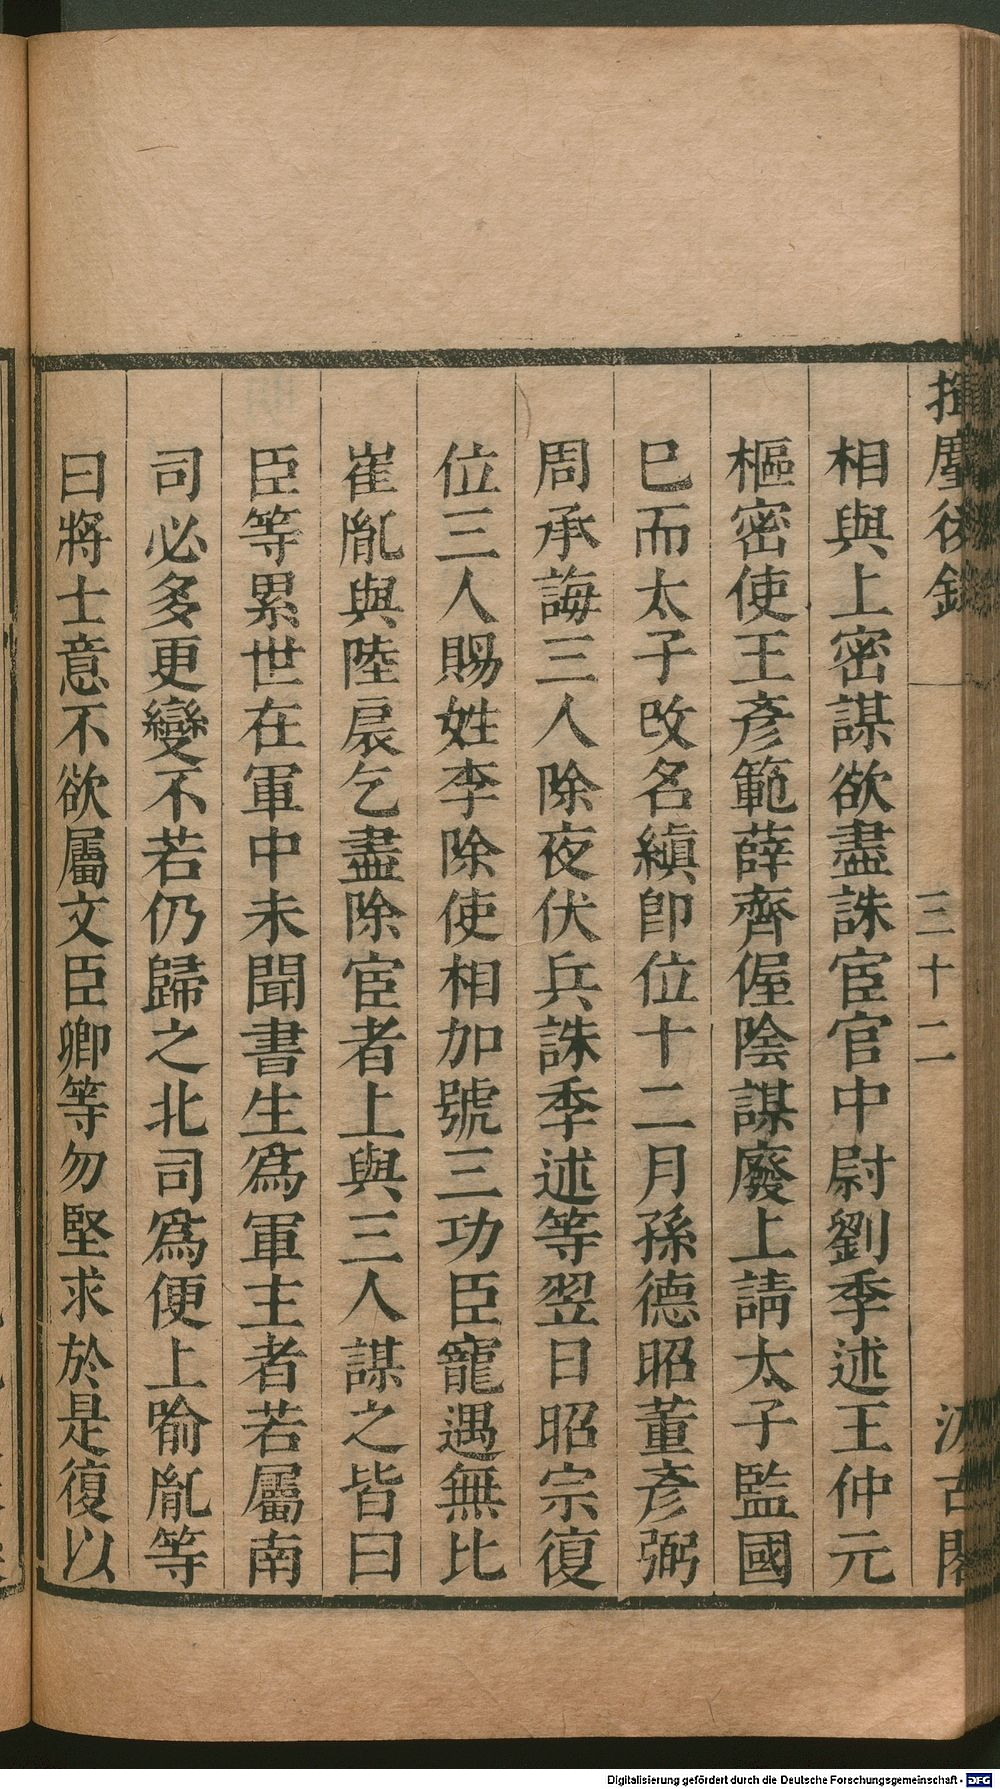 揮麈後錄
三十二
汲古閣
相與上密謀欲盡誅宦官中尉劉季述王仲元
樞密使王彥範薛齊偓陰謀廢上請太子監國
巳而太子改名縝卽位十二月孫德昭董彥弼
周承誨三人除夜伏兵誅季述等翌日昭宗復
位三人賜姓李除使相加號三功臣寵遇無比
崔胤與陸扆乞盡除宦者上與三人謀之皆曰
臣等累世在軍中未聞書生爲軍主者若屬南
司必多更變不若仍歸之北司爲便上喻胤等
曰將士意不欲屬文臣卿等勿堅求於是復以
Digitalisierung gefördert durch die Deutsche Forschungsgemeinschaft - DFG